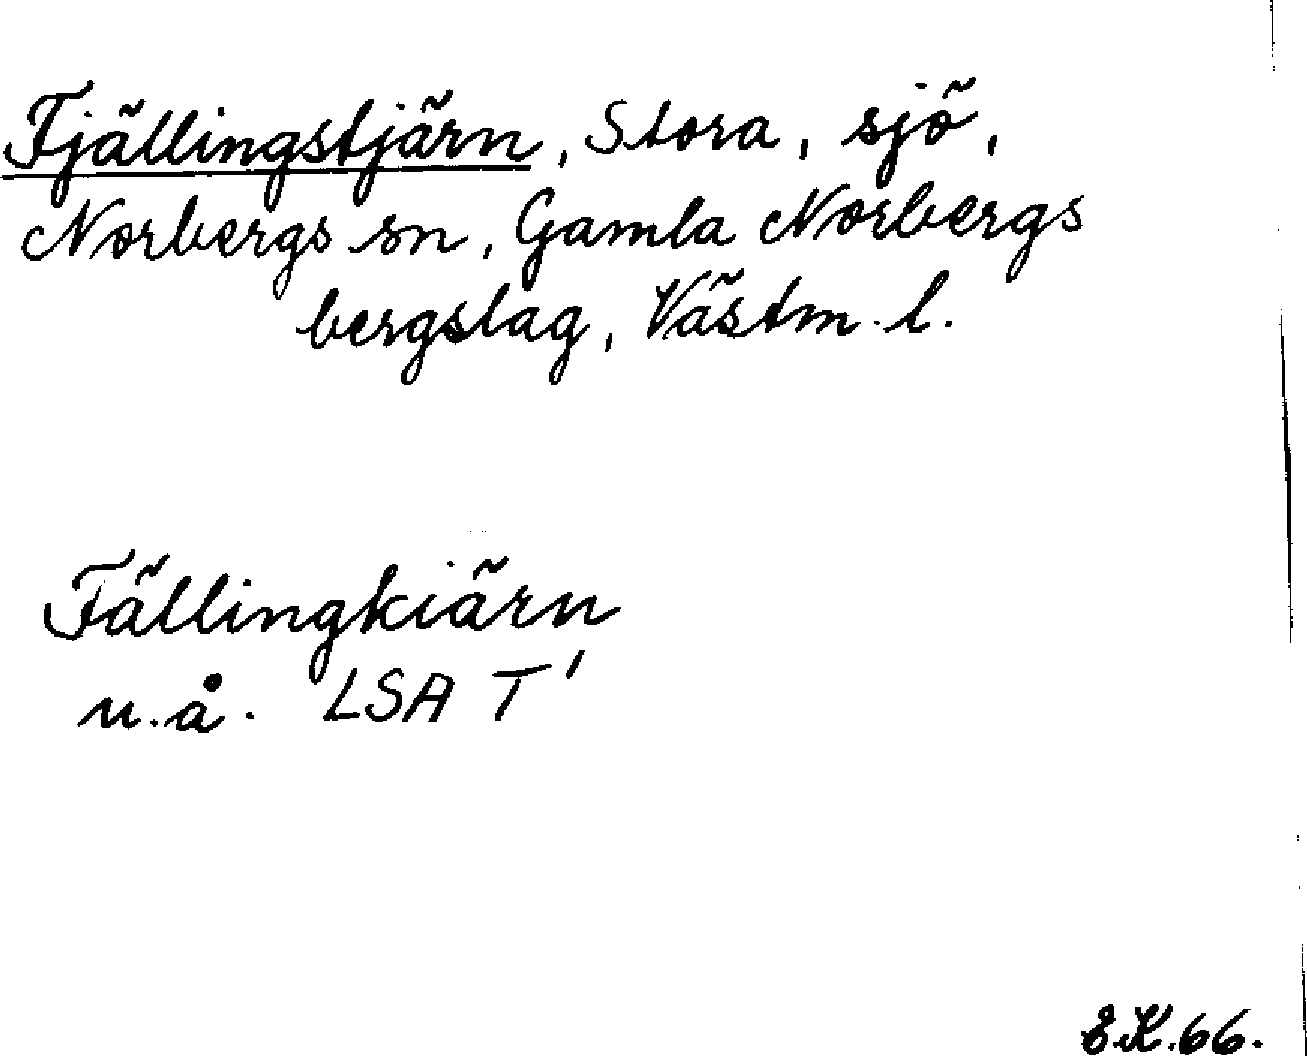 Fjällingstjärn, Stora, sjö,
Norbergs sn, Gamla Norbergs
bergslag, Västm. l.
Fällingkiärn
u.å. LSA T'
E.K. 66.